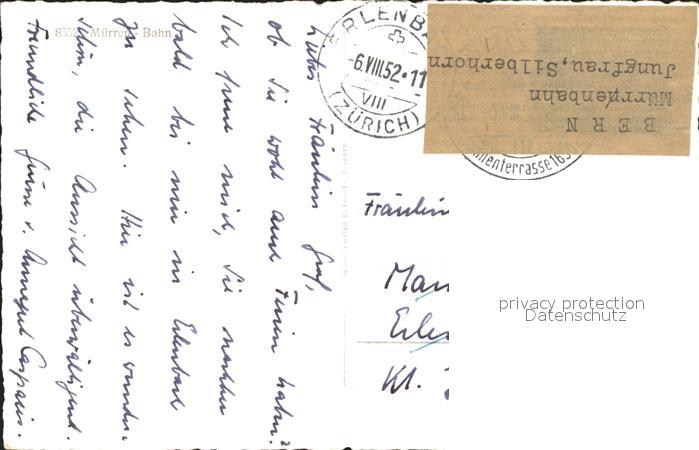 8552 Mürren-Bahn
Liebes Fräulein Graf,
ob Sie wohl auch Ferien haben?
Ich freue mich, Sie nachher
bald bei mir in Erlenbach
zu sehen. Hier ist es wunder-
schön, die Aussicht überwältigend.
Freundliche Grüsse v. Annegret Caspari.
ERLENBA
-6.VIII.52-11
VIII
(ZÜRICH)
BERN
Mürrenbahn
Jungfrau, Silberhorn
nenterrasse
Fräulein
Man
Erle
Kt.
privacy protection
Datenschutz